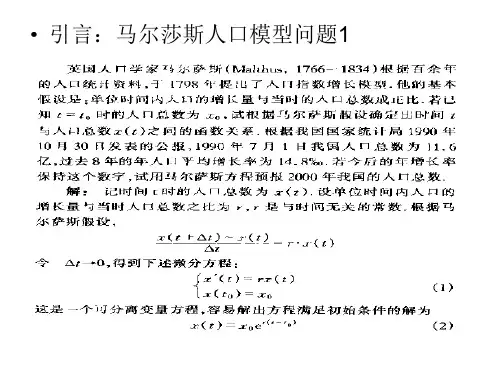 • 引言：马尔莎斯人口模型问题1
英国人口学家马尔萨斯(Malthus, 1766-1834)根据百余年
的人口统计资料,于1798年提出了人口指数增长模型.他的基本
假设是:单位时间内人口的增长量与当时的人口总数成正比.若已
知 t=t₀ 时的人口总数为 x₀,试根据马尔萨斯假设确定出时间 t
与人口总数 x(t)之间的函数关系.根据我国国家统计局1990年
10月30日发表的公报,1990年7月1日我国人口总数为11.6
亿,过去8年的年人口平均增长率为14.8‰.若今后的年增长率
保持这个数字,试用马尔萨斯方程预报2000年我国的人口总数.
解: 记时间 t 时的人口总数为 x(t).设单位时间内人口的
增长量与当时人口总数之比为 r,r 是与时间无关的常数.根据马
尔萨斯假设,
x(t+Δt)-x(t)
Δt
=r·x(t)
令 Δt→0,得到下述微分方程:
x′(t)=rx(t)
x(t₀)=x₀
(1)
这是一个可分离变量方程,容易解出方程满足初始条件的解为
x(t)=x₀e^{r(t-t₀)} (2)